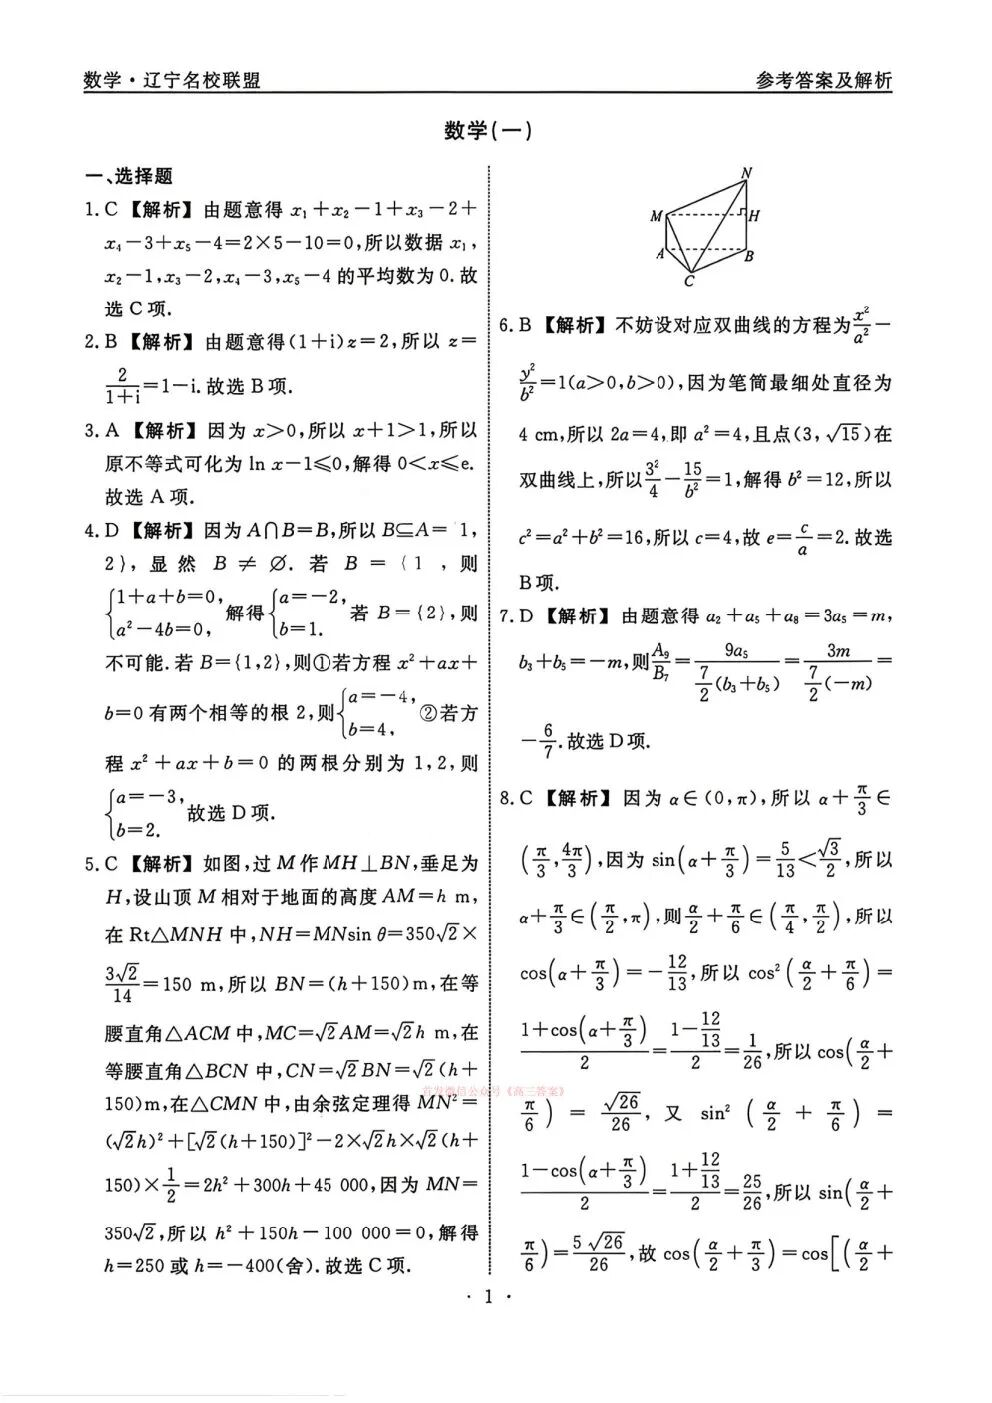 数学·辽宁名校联盟
参考答案及解析
数学(一)
一、选择题
1. C 【解析】由题意得 x₁+x₂-1+x₃-2+
x₄-3+x₅-4=2×5-10=0,所以数据 x₁,
x₂-1,x₃-2,x₄-3,x₅-4 的平均数为 0. 故
选 C 项.
2. B 【解析】由题意得(1+i)z=2,所以 z=
2/(1+i)=1-i. 故选 B 项.
3. A 【解析】因为 x>0,所以 x+1>1,所以
原不等式可化为 ln x-1≤0,解得 0<x≤e.
故选 A 项.
4. D 【解析】因为 A∩B=B,所以 B⊆A= 1,
2},显然 B≠∅. 若 B={1 ,则
{1+a+b=0, a²-4b=0, 解得{a=-2, b=1. 若 B={2},则
不可能. 若 B={1,2},则①若方程 x²+ax+
b=0 有两个相等的根 2,则{a=-4, b=4, ②若方
程 x²+ax+b=0 的两根分别为 1,2,则
{a=-3, b=2. 故选 D 项.
5. C 【解析】如图,过 M 作 MH⊥BN,垂足为
H,设山顶 M 相对于地面的高度 AM=h m,
在 Rt△MNH 中,NH=MNsin θ=350√2×
3√2/14=150 m,所以 BN=(h+150)m,在等
腰直角△ACM 中,MC=√2AM=√2h m,在
等腰直角△BCN 中,CN=√2BN=√2(h+
150)m,在△CMN 中,由余弦定理得 MN²=
(√2h)²+[√2(h+150)]²-2×√2h×√2(h+
150)×1/2=2h²+300h+45 000,因为 MN=
350√2,所以 h²+150h-100 000=0,解得
h=250 或 h=-400(舍). 故选 C 项.
N
M H
A B
C
6. B 【解析】不妨设对应双曲线的方程为x²/a²-
y²/b²=1(a>0,b>0),因为笔筒最细处直径为
4 cm,所以 2a=4,即 a²=4,且点(3,√15)在
双曲线上,所以3²/4-15/b²=1,解得 b²=12,所以
c²=a²+b²=16,所以 c=4,故 e=c/a=2. 故选
B 项.
7. D 【解析】由题意得 a₂+a₅+a₈=3a₅=m,
b₃+b₅=-m,则A₉/B₇=9a₅/(7/2(b₃+b₅))=3m/(7/2(-m))=
-6/7. 故选 D 项.
8. C 【解析】因为 α∈(0,π),所以 α+π/3∈
(π/3,4π/3),因为 sin(α+π/3)=5/13<√3/2,所以
α+π/3∈(π/2,π),则α/2+π/6∈(π/4,π/2),所以
cos(α+π/3)=-12/13,所以 cos²(α/2+π/6)=
(1+cos(α+π/3))/2=(1-12/13)/2=1/26,所以 cos(α/2+
π/6)=√26/26,又 sin²(α/2+π/6)=
(1-cos(α+π/3))/2=(1+12/13)/2=25/26,所以 sin(α/2+
π/6)=5√26/26,故 cos(α/2+π/3)=cos[(α/2+
首发微信公众号《高三答案》
· 1 ·